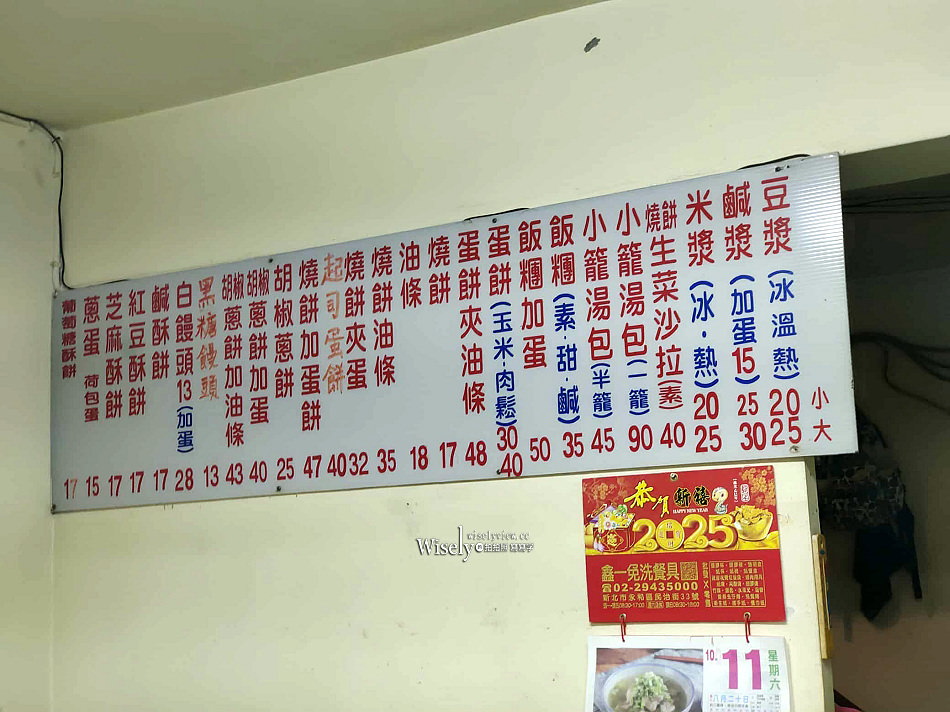 豆漿(冰溫熱) 小20 大25
鹹漿(加蛋15) 25 30
米漿(冰·熱) 20 25
燒餅生菜沙拉(素) 40
小籠湯包(一籠) 90
小籠湯包(半籠) 45
飯糰(素·甜·鹹) 35
飯糰加蛋 50
蛋餅(玉米·肉鬆) 30 40
蛋餅夾油條 48
燒餅 17
油條 18
燒餅油條 35
燒餅夾蛋 32
起司蛋餅 40
燒餅加蛋餅 47
胡椒蔥餅 25
胡椒蔥餅加蛋 40
胡椒蔥餅加油條 43
黑糖饅頭 13
白饅頭13(加蛋) 28
鹹酥餅 17
紅豆酥餅 17
芝麻酥餅 17
蔥蛋 荷包蛋 15
葡萄糖酥餅 17
恭賀新禧
HAPPY NEW YEAR
2025
鑫一免洗餐具
☎02-29435000
新北市永和區民治街33號
批發X零售
10 11 星期六
八月二十日
wiselyview.cc
Wisely